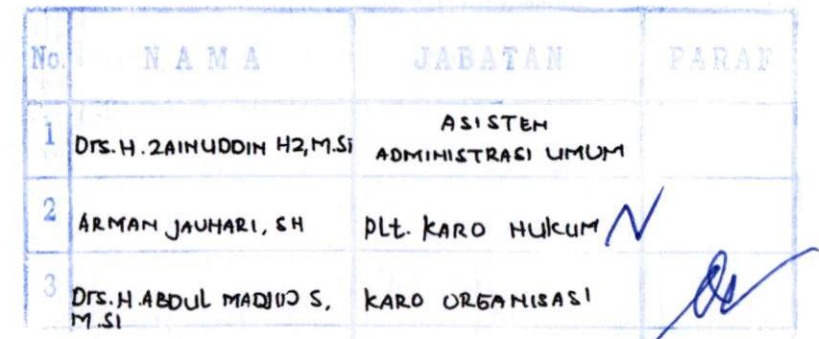 No. NAMA JABATAN PARAF
1 Drs. H. ZAINUDDIN HZ, M.Si ASISTEN
ADMINISTRASI UMUM
2 ARMAN JAUHARI, SH Plt. KARO HUKUM
3 Drs. H. ABDUL MADJID S, KARO ORGANISASI
M.SI